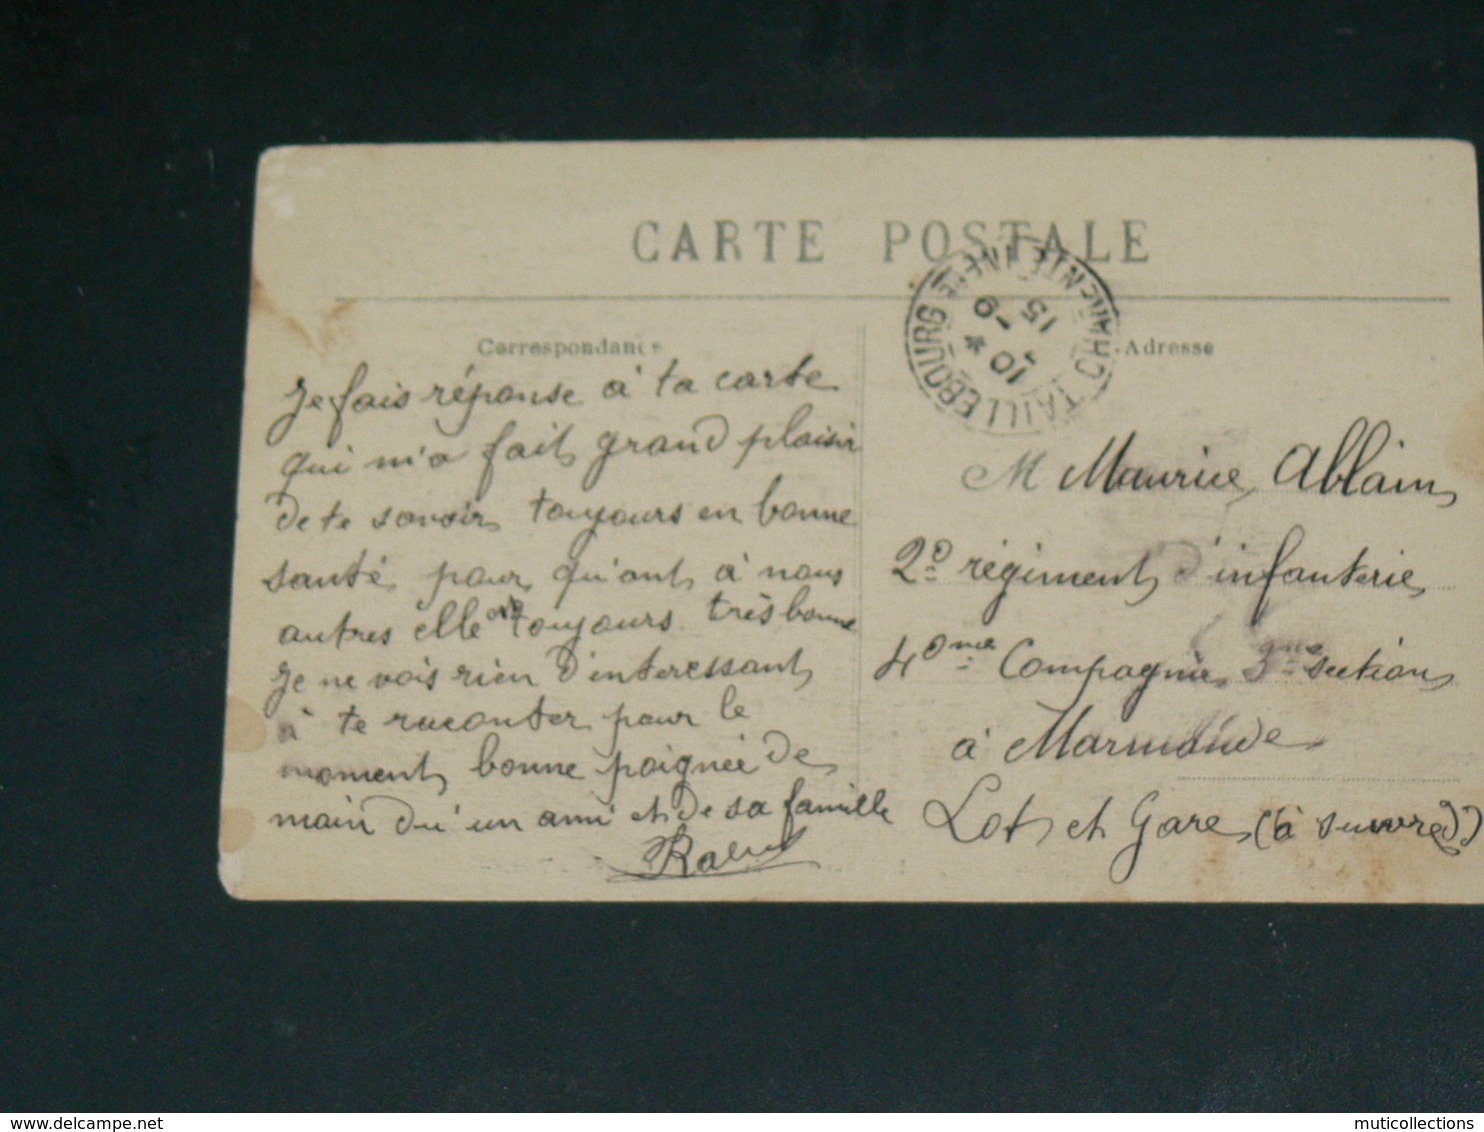 CARTE POSTALE
TAILLEBOURG CHARENTE INFRE
10 *
-9
15
Correspondance
Adresse
Je fais réponse à ta carte
qui m'a fait grand plaisir
de te savoir toujours en bonne
santé pour qu'ant à nous
autres elle est toujours très bonne
Je ne vois rien d'interessant
à te raconter pour le
moment bonne poignée de
main du'un ami et de sa famille
M Maurice Ablain
2e régiment d'infanterie
4eme Compagnie 3eme section
à Marmande
Lot et Gare (à suivre)
delcampe.net
muticollections